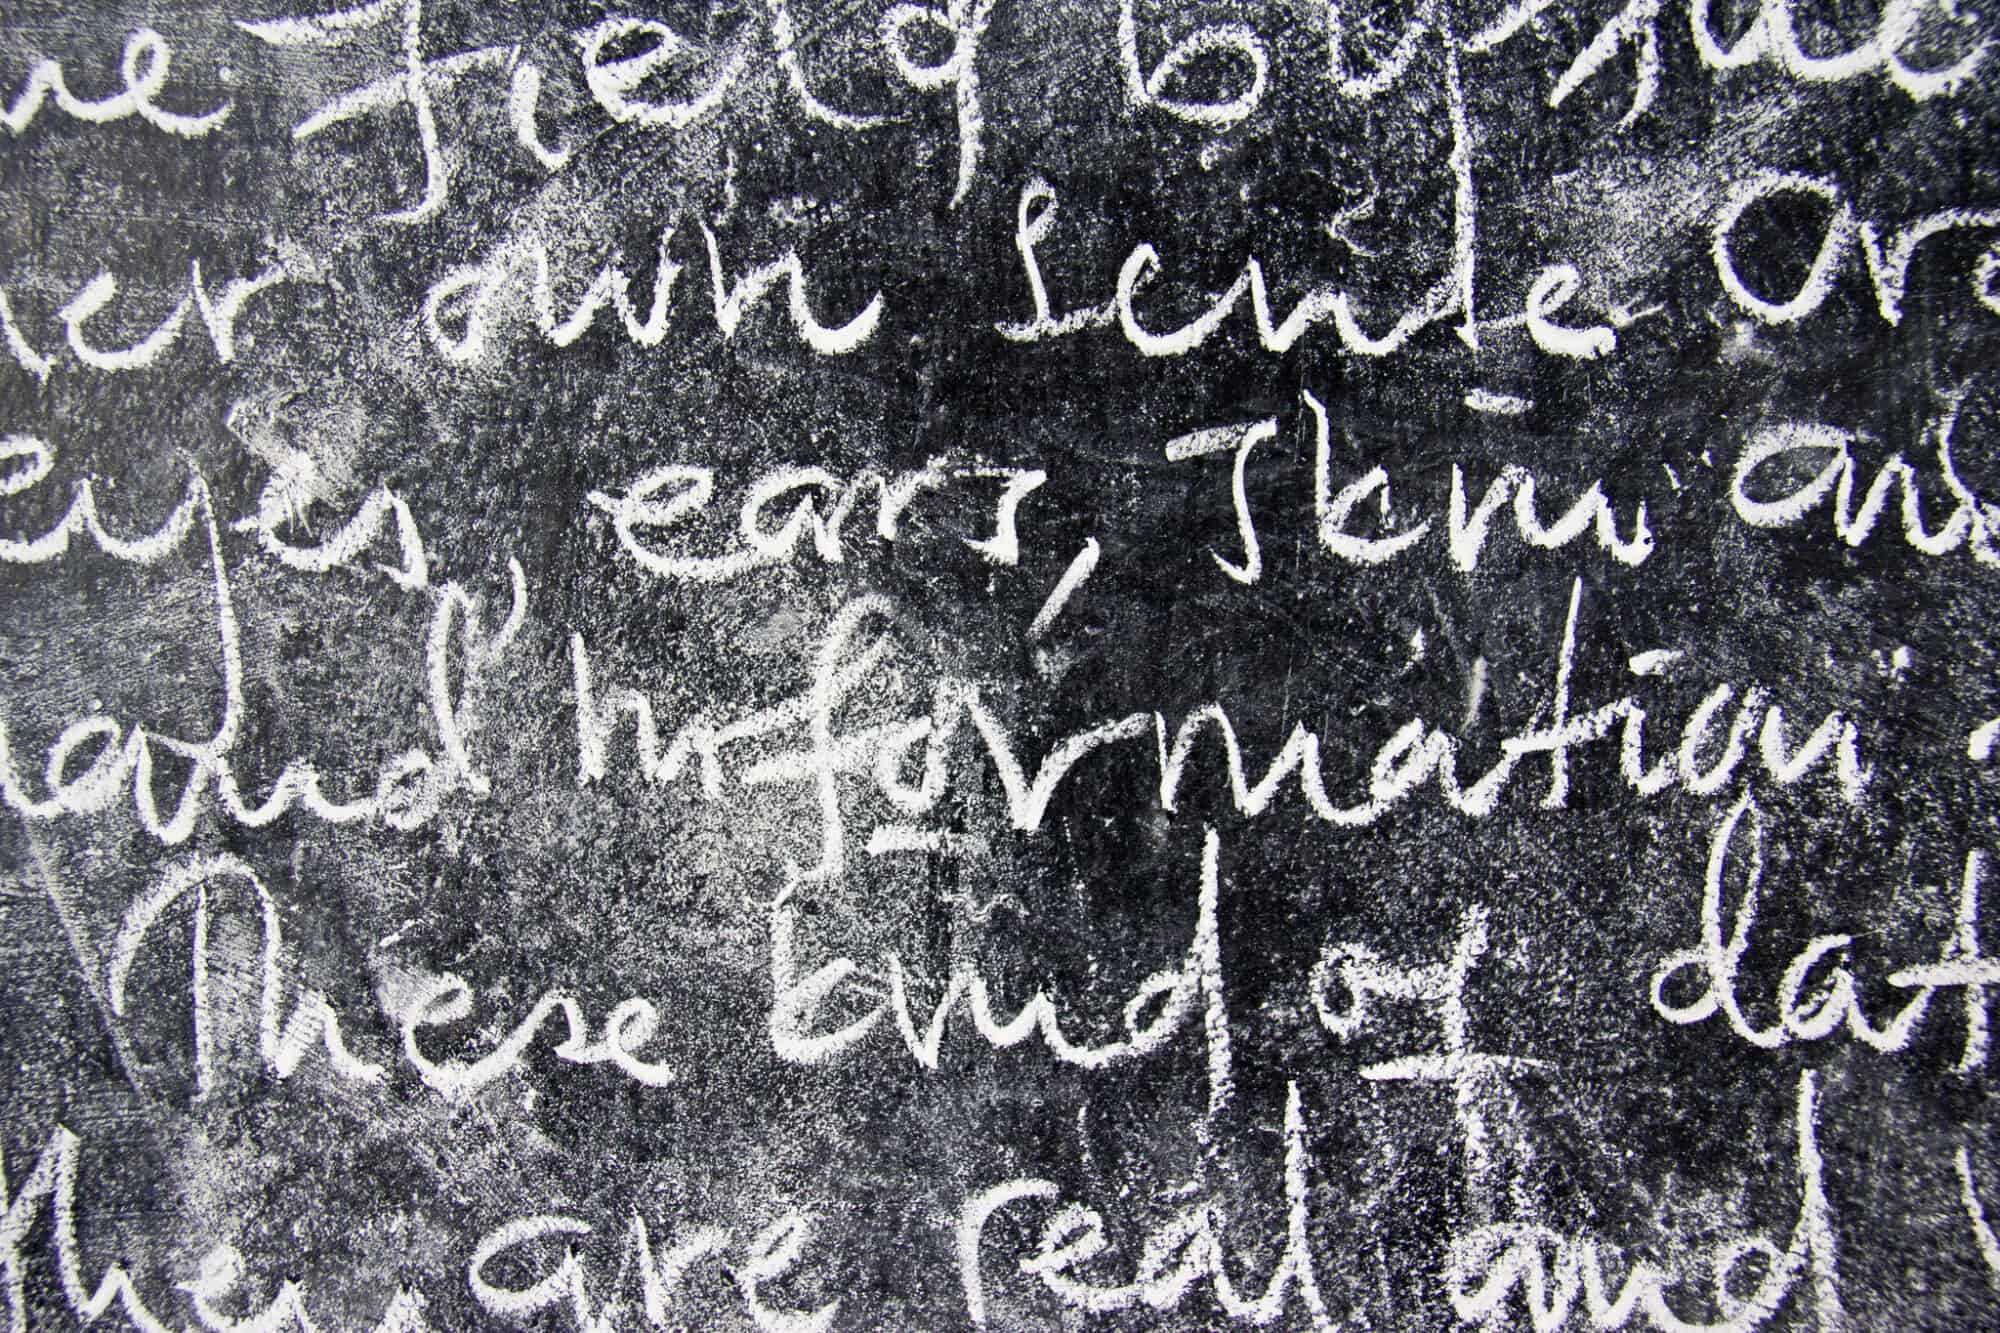 he field by the
her own sense or
eyes, ears, skin and
hand information
These kind of dat
they are real and